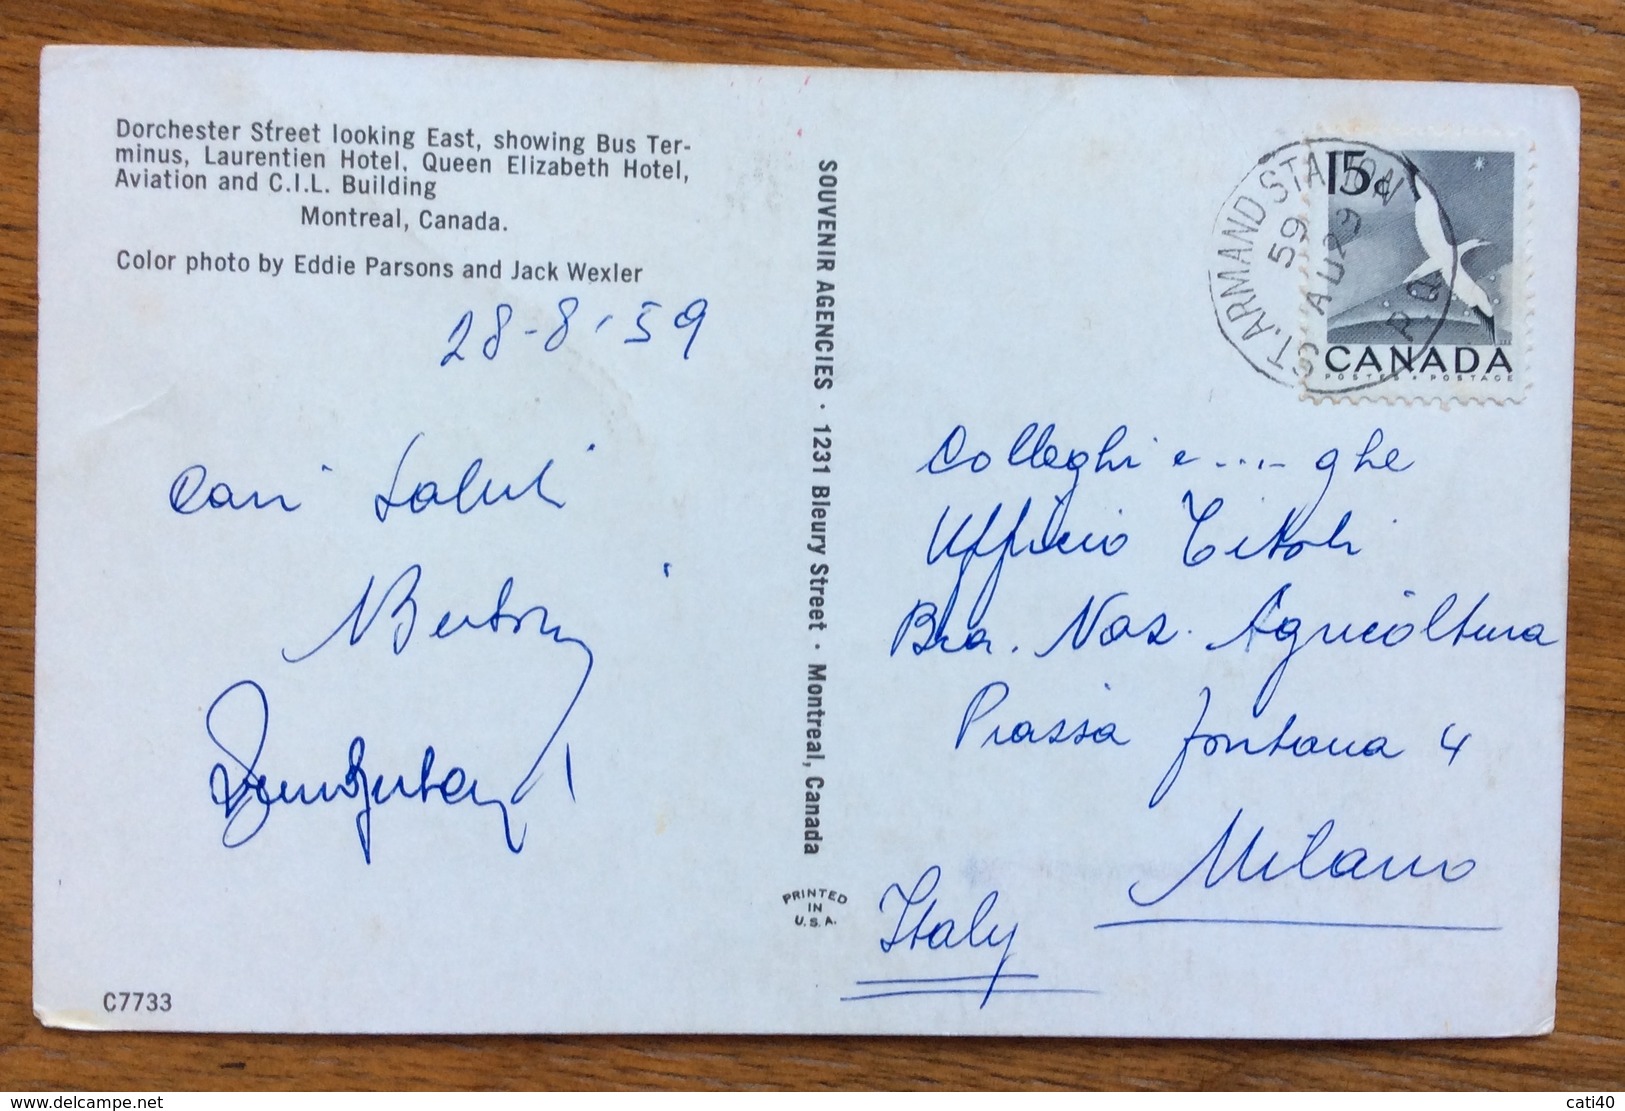 Dorchester Street looking East, showing Bus Ter-
minus, Laurentien Hotel, Queen Elizabeth Hotel,
Aviation and C.I.L. Building
Montreal, Canada.
Color photo by Eddie Parsons and Jack Wexler
28-8-59
Cari Saluti
C7733
SOUVENIR AGENCIES · 1231 Bleury Street · Montreal, Canada
PRINTED
IN
U.S.A.
ST. ARMAND STATION
59
AU 29
P.Q.
15c
CANADA
POSTES · POSTAGE
Colleghi e ..... ghe
Ufficio Titoli
Bca. Naz. Agricoltura
Piazza Fontana 4
Milano
Italy
cati40